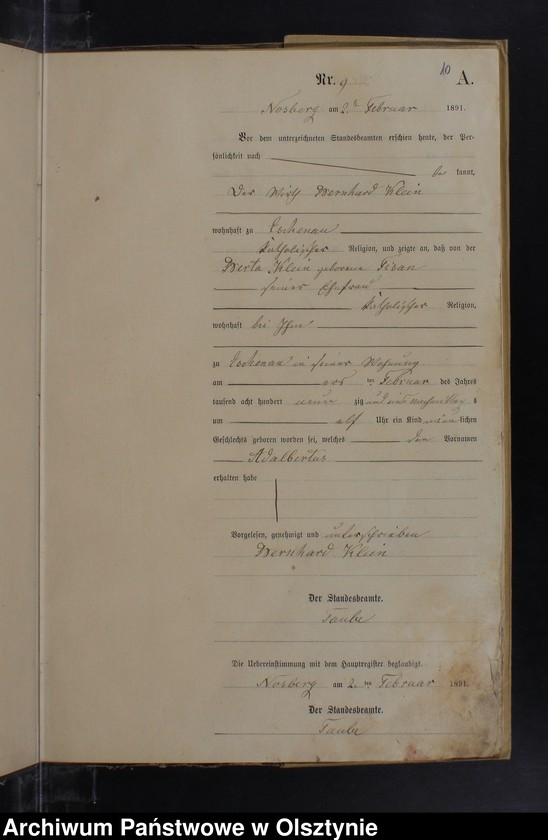 10
Nr. 9 A.
Nosberg am 2. Februar 1891.
Vor dem unterzeichneten Standesbeamten erschien heute, der Per-
sönlichkeit nach
be kannt,
Der Wirth Bernhard Klein
wohnhaft zu Eschenau
katholischer Religion, und zeigte an, daß von der
Berta Klein geborene
seiner Ehefrau
katholischer Religion,
wohnhaft bei Ihm
zu Eschenau in seiner Wohnung
am ersten Februar des Jahres
tausend acht hundert neun zig und eins Nachmittag s
um elf Uhr ein Kind männ lichen
Geschlechts geboren worden sei, welches den Vornamen
Adalbertus
erhalten habe
Vorgelesen, genehmigt und unterschrieben
Bernhard Klein
Der Standesbeamte.
Taube
Die Uebereinstimmung mit dem Hauptregister beglaubigt.
Nosberg am 2. ten Februar 1891.
Der Standesbeamte.
Taube
Archiwum Państwowe w Olsztynie